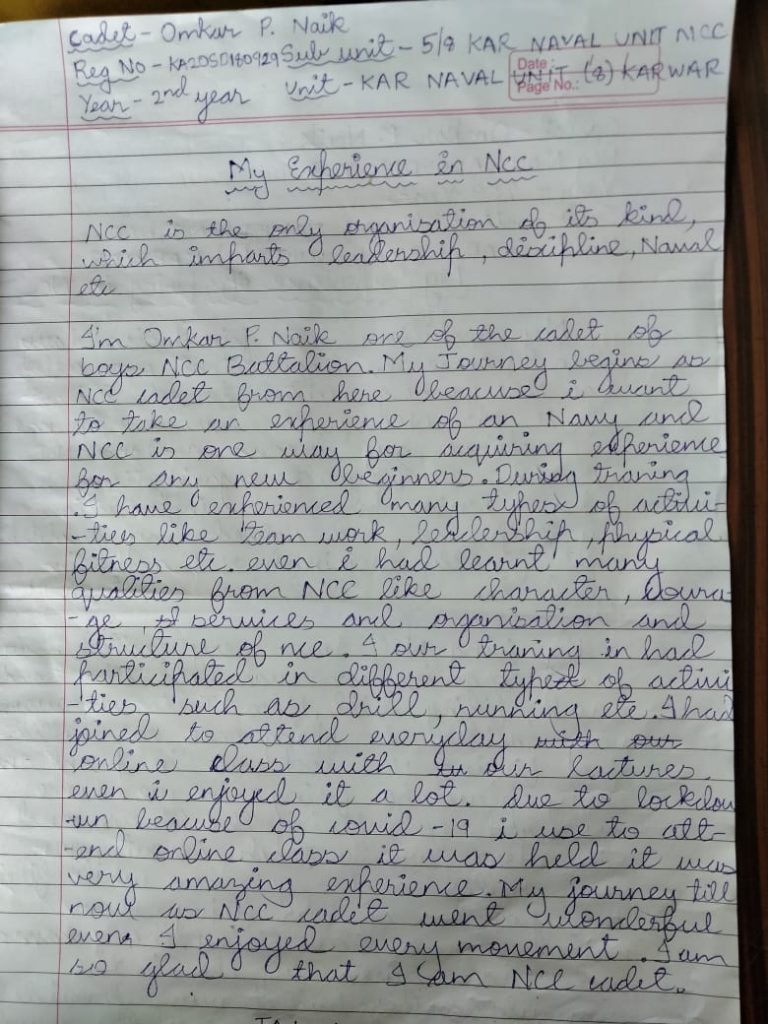 Cadet - Omkar P. Naik
Reg No - KA20SD180929 Sub unit - 5/8 KAR NAVAL UNIT NCC
Date :
Year - 2nd year unit - KAR NAVAL UNIT (8) KARWAR
Page No.:
My Experience in NCC
NCC is the only organisation of its kind,
which imparts leadership, discipline, Naval
etc
I'm Omkar P. Naik one of the cadet of
boys NCC Battalion. My Journey begins as
NCC cadet from here beacuse i want
to take an experience of an Navy and
NCC is one way for acquiring experience
for any new beginners. During traning
. I have experienced many types of activi-
-ties like team work, leadership, physical
fitness etc. even i had learnt many
qualities from NCC like character, Coura-
-ge, services and organisation and
structure of ncc. I our traning in had
participated in different types of activi
-ties such as drill, running etc. I had
joined to attend everyday with our
online class with our lactures
even i enjoyed it a lot. due to lockdow
-wn beacuse of covid -19 i use to att-
-end online class it was held it was
very amazing experience. My journey till
now as NCC cadet went wonderful
even I enjoyed every movement. I am
so glad that I am NCC cadet.